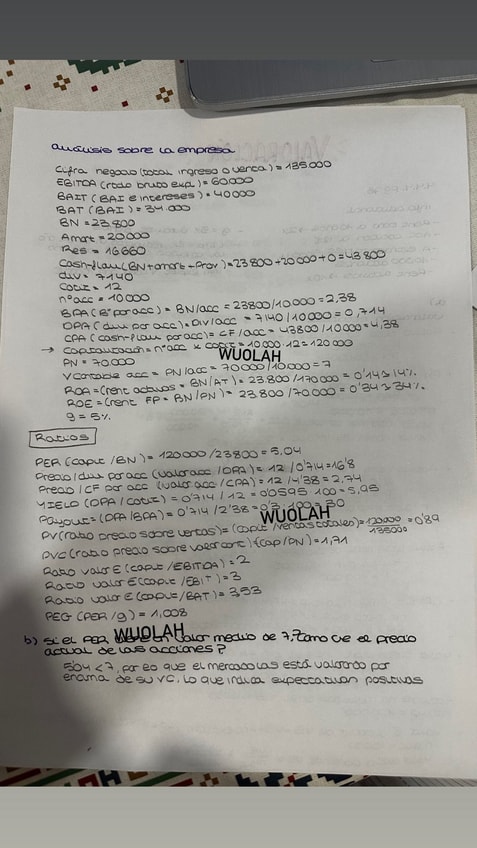 análisis sobre la empresa
Cifra negocio (total ingreso o venta) = 135000
EBITDA (rtado bruto exp.) = 60000
BAIT (BAI e intereses) = 40000
BAT (BAI) = 34.000
BN = 23.800
Amort = 20000
Res = 16660
Cash-flow (BN + amort + Prov) = 23800 + 20000 + 0 = 43800
div = 7140
Cotiz = 12
nº acc = 10000
BPA (Bº por acc) = BN/acc = 23800/10000 = 2,38
DPA (div por acc) = Div/acc = 7140/10000 = 0,714
CPA (cash-flow por acc) = CF/acc = 43800/10000 = 4,38
→ Capitalización = nº acc x Cotiz = 10000·12 = 120000
WUOLAH
PN = 70.000
V contable acc = PN/acc = 70000/10000 = 7
ROA = (rent activos = BN/AT) = 23.800/170000 = 0'14 → 14%
ROE = (rent FP = BN/PN) = 23.800/70000 = 0'34 → 34%
g = 5%
Ratios
PER (capit/BN) = 120000/23800 = 5,04
Precio/div por acc (valor acc/DPA) = 12/0'714 = 16'8
Precio/CF por acc (valor acc/CPA) = 12/4'38 = 2,74
YIELD (DPA/cotiz) = 0'714/12 = 0'0595·100 = 5,95
Payout = (DPA/BPA) = 0'714/2'38 = 0'3·100 = 30
WUOLAH
PV (ratio precio sobre ventas) = (capit/ventas totales) = 120000/135000 = 0'89
PVC (ratio precio sobre valor cont) = (cap/PN) = 1,71
Ratio valor E (capit/EBITDA) = 2
Ratio valor E (capit/EBIT) = 3
Ratio valor E (capit/BAT) = 3,53
PEG (PER/g) = 1,008
WUOLAH
b) si el PER tiene un valor medio de 7, ¿cómo ve el precio
actual de las acciones?
5,04 < 7, por eo que el mercado las está valorando por
encima de su VC, lo que indica expectativas positivas